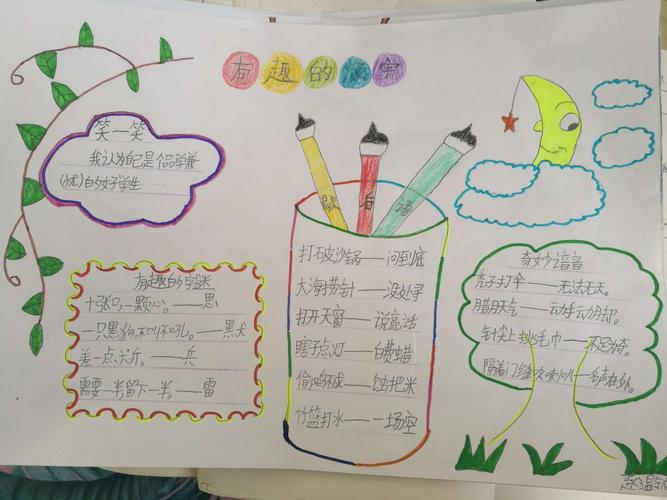 有趣的汉字
笑一笑
我认为自己是个品学兼
(忧)的好学生……
有趣的字谜
十张口,一颗心。——思
一只黑狗,不叫不吼。——黑犬
差一点六斤。——兵
需要一半留下一半。——雷
歇后语
打破沙锅——问到底
大海捞针——没处寻
打开天窗——说亮话
瞎子点灯——白费蜡
偷鸡不成——蚀把米
竹篮打水——一场空
奇妙谐音
秃子打伞——无法无天。
腊月天气——动手动脚。
针尖上挑毛巾——不足为奇。
隔着门缝吹喇叭——名声在外。